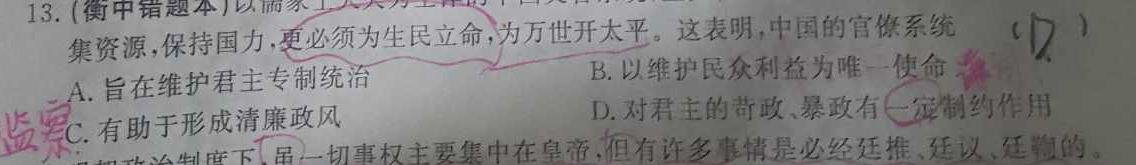 13. (衡中错题本)以儒家士大夫为主体的中国文官系统
集资源,保持国力,更必须为生民立命,为万世开太平。这表明,中国的官僚系统 (D)
A. 旨在维护君主专制统治 B. 以维护民众利益为唯一使命
监察 C. 有助于形成清廉政风 D. 对君主的苛政、暴政有一定制约作用
政治制度下,虽一切事权主要集中在皇帝,但有许多事情是必经廷推、廷议、廷鞫的。